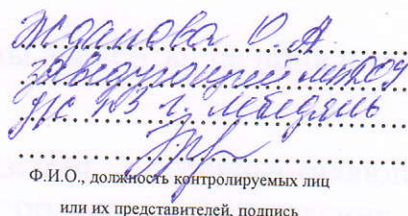 Жданова О.А.
заведующей МБДОУ
д/с №3 г. Лебедянь
Ф.И.О., должность контролируемых лиц
или их представителей, подпись